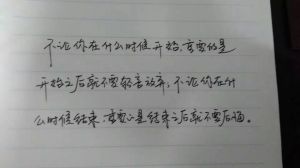 不论你在什么时候开始,重要的是
开始之后就不要轻言放弃,不论你在什
么时候结束,重要的是结束之后就不要后悔。